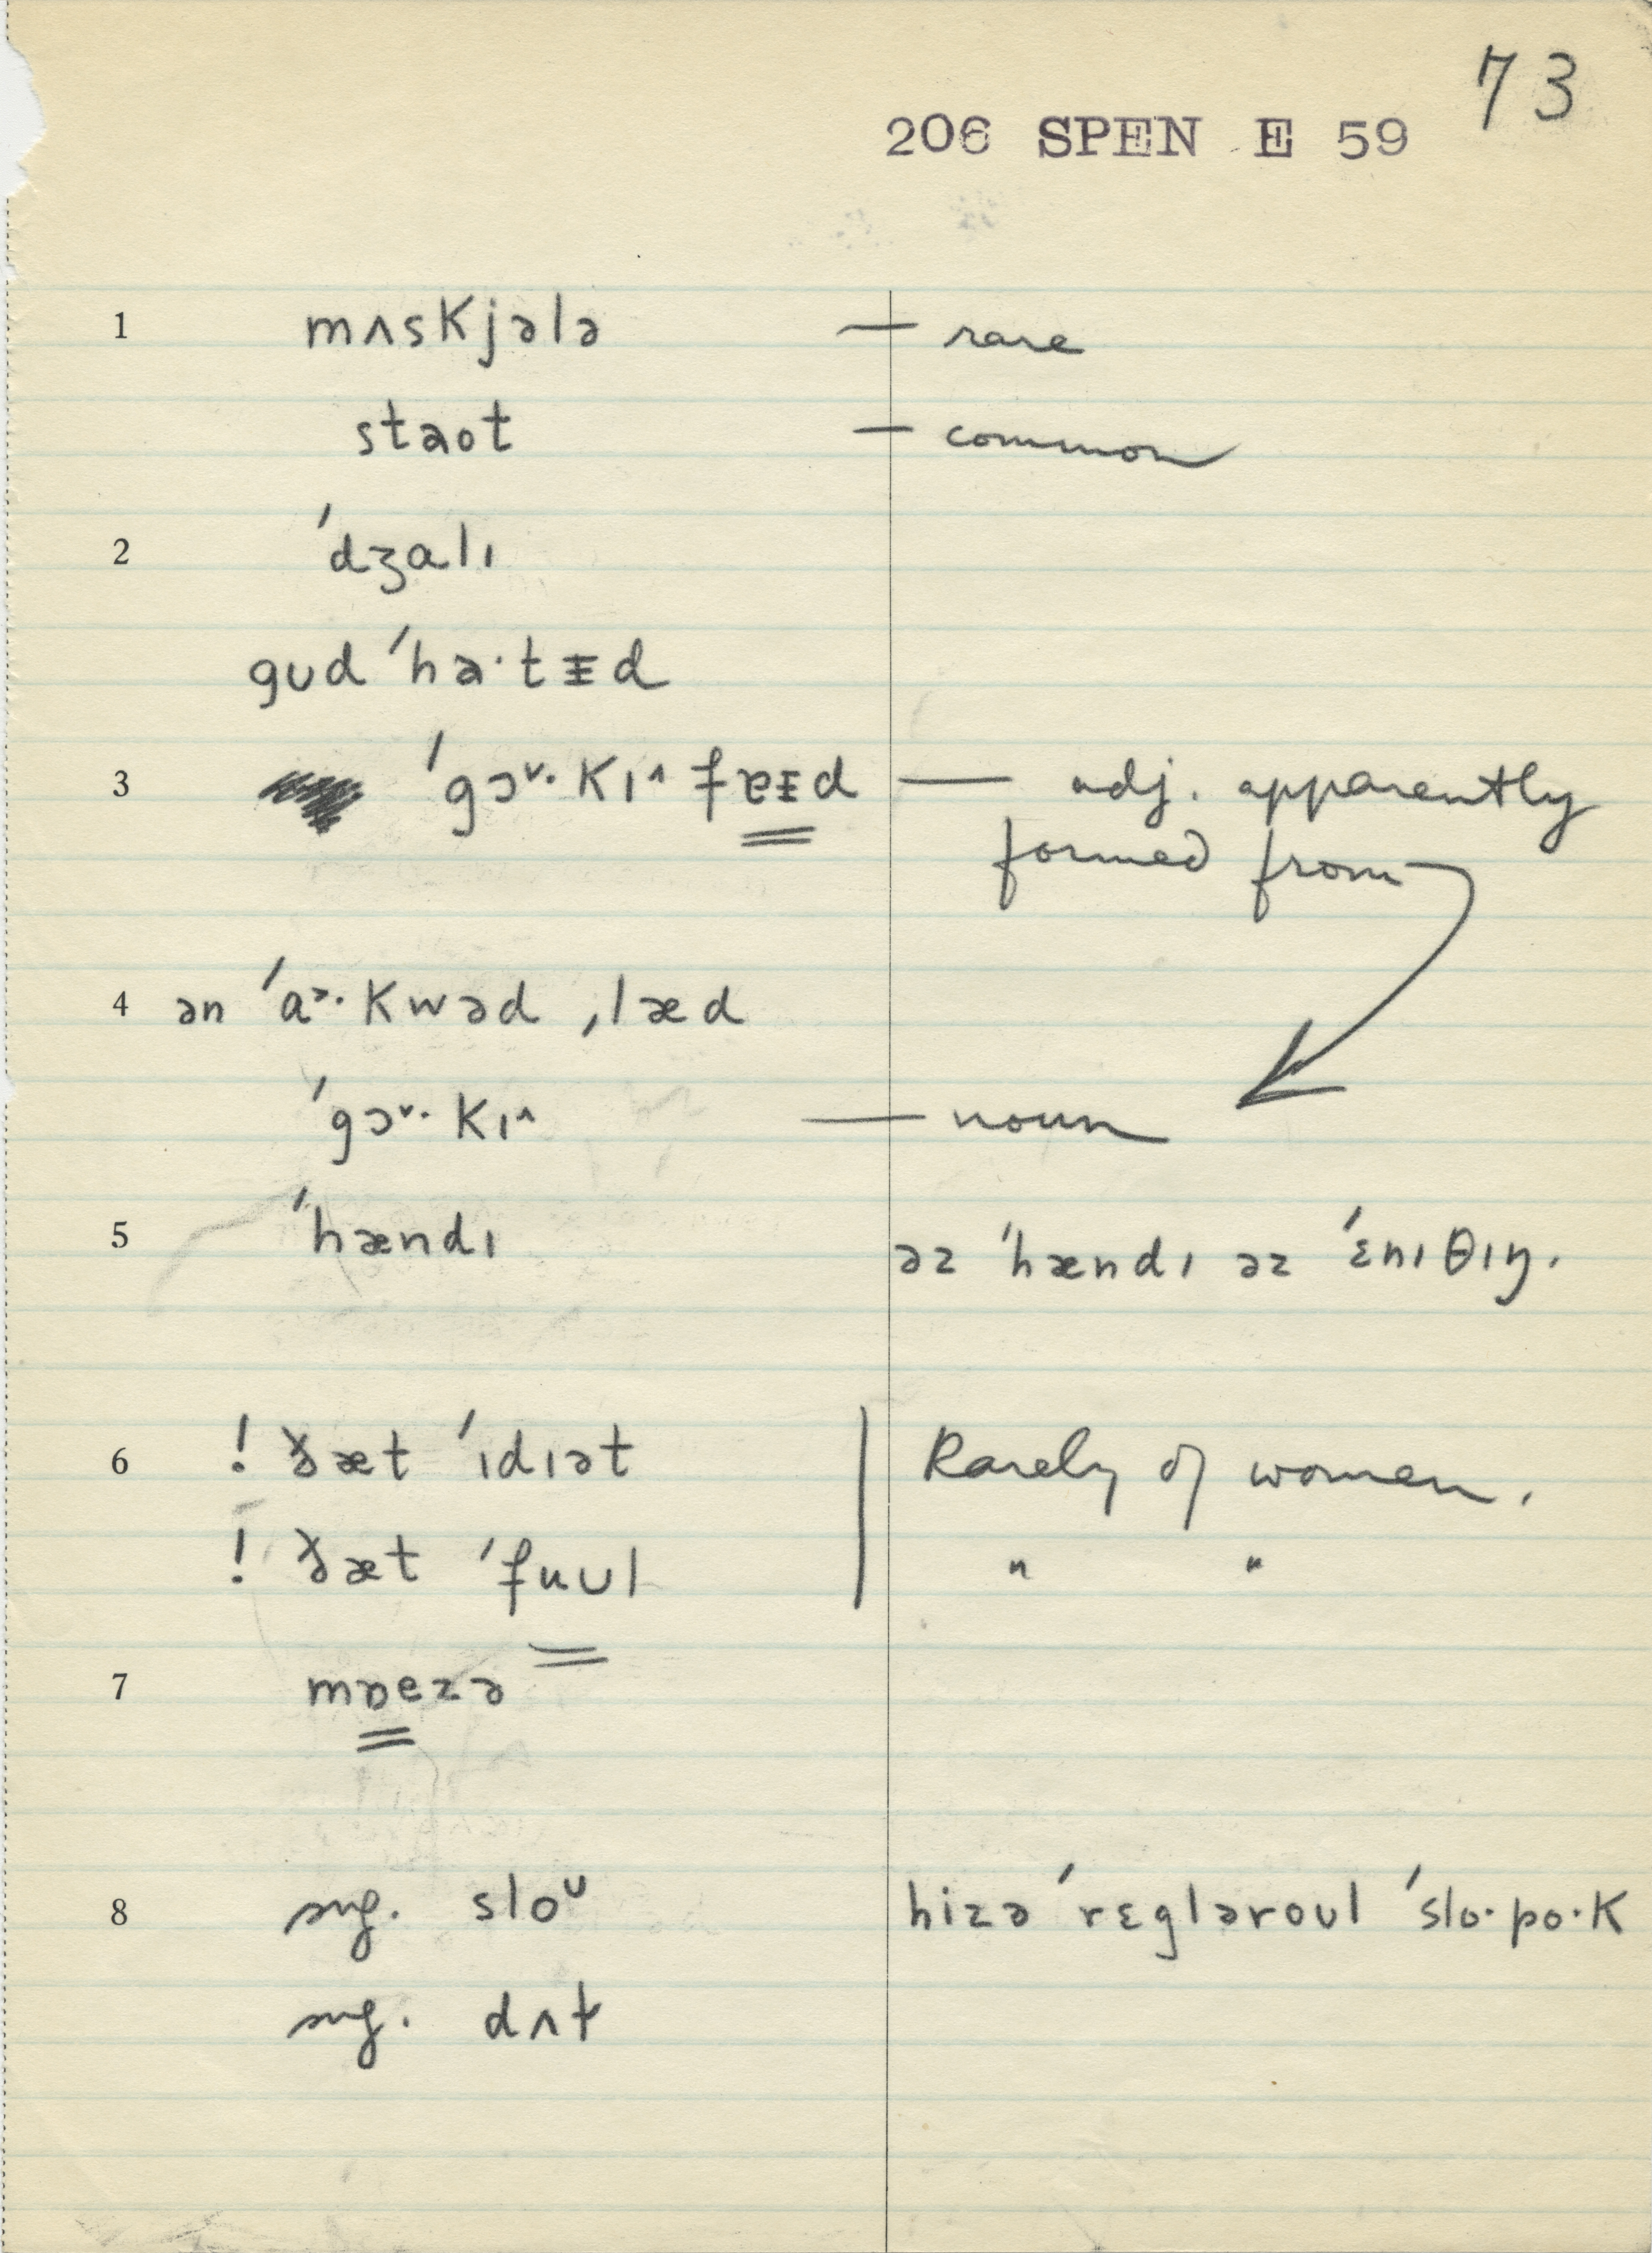 73
206 SPEN E 59
1 mʌskjələ — rare
staot — common
2 ˈdʒalɪ
gʊd ˈha·tɪd
3 ˈgɔ˅·kɪ˄ fɐɪd — adj. apparently
formed from
4 ən ˈɑ˃·kwəd ˌlæd
ˈgɔ˅·kɪ˄ — noun
5 ˈhændɪ əz ˈhændɪ əz ˈɛnɪθɪŋ.
6 ! ðæt ˈɪdɪət Rarely of women.
! ðæt ˈfuʊl " "
7 mɒezə
8 sug. sloᶷ hizə ˈrɛgləroʊl ˈslo·po·k
sug. dʌɫ